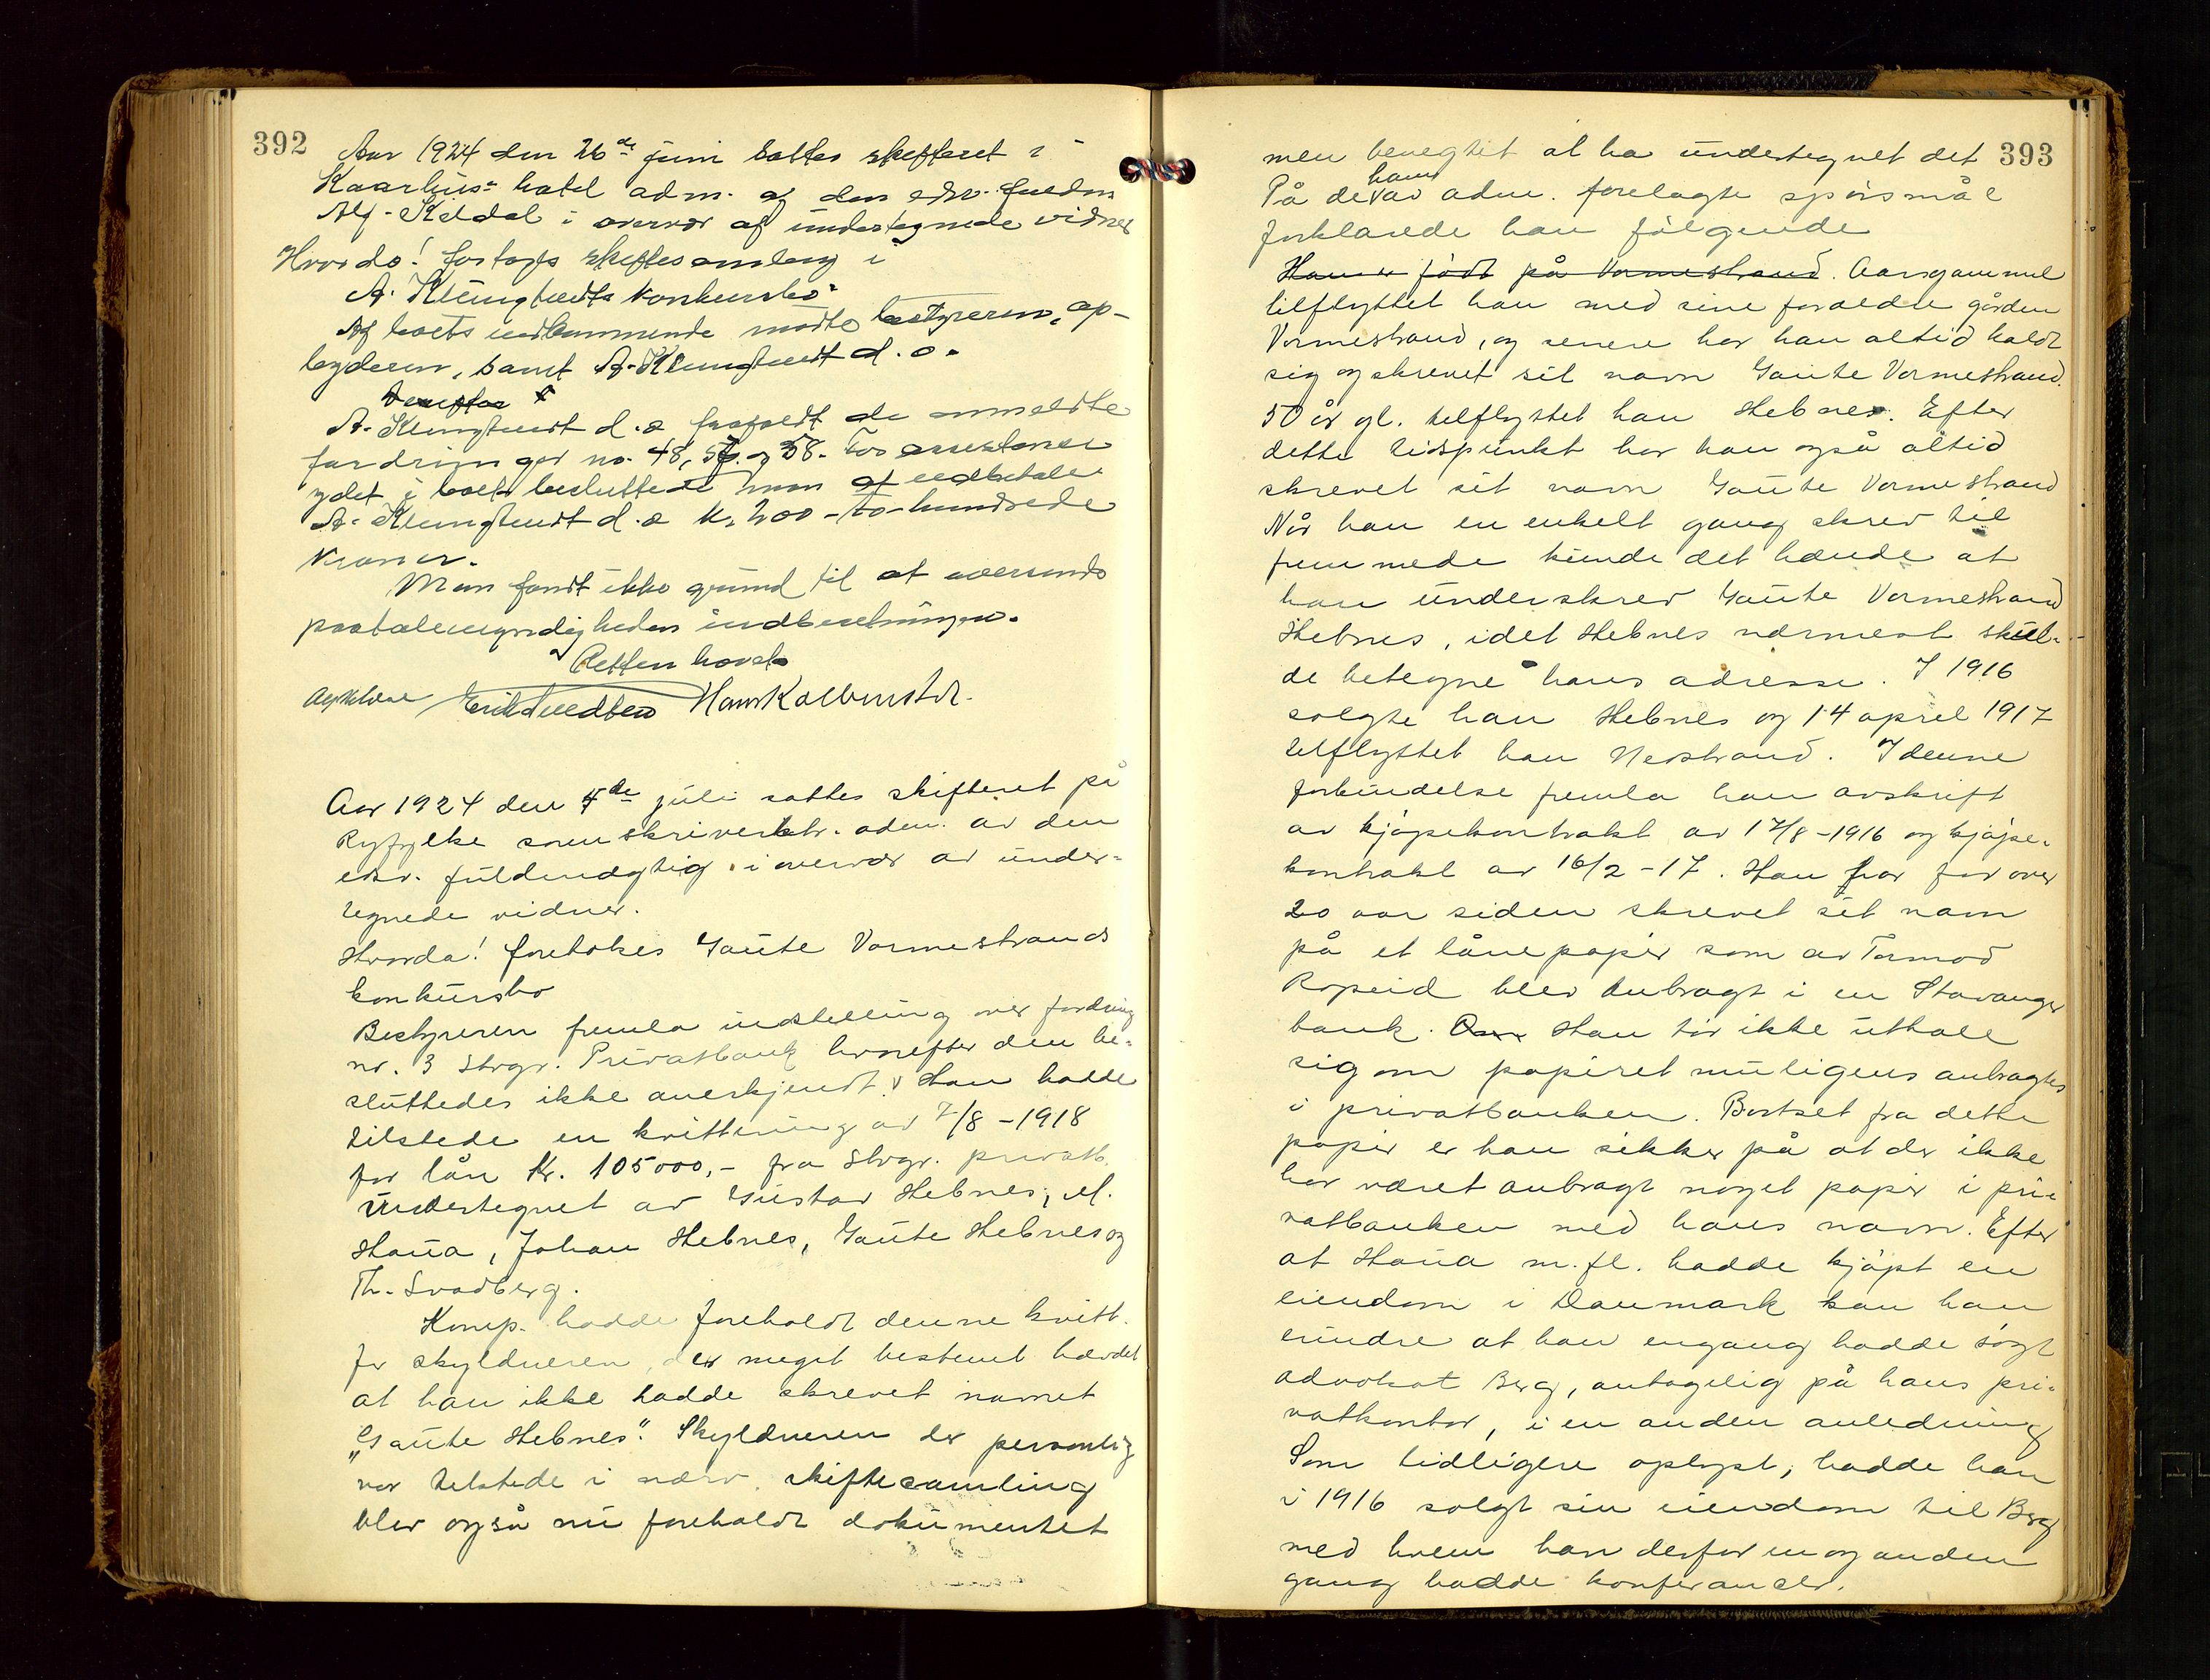 392
Aar 1924 den 26de juni sattes skifteret i
Kaarhus hotel adm. af den edsv. fuldm.
Alf Keldal i overvær af undertegnede vidner
Hvorda! foretoges skiftesamling i
A. Klungtvedts konkursbo.
Af boets vedkommende mødte bestyreren, op-
byderen, samt A. Klungtvedt d. o.
A. Klungtvedt d. æ frafaldt de anmeldte
fordringer no. 48, 57 og 58. For assistanse
ydet i boet besluttede man at utbetale
A. Klungtvedt d. æ kr. 200 - to-hundrede
kroner.
Man fandt ikke grund til at oversende
paatalemyndigheden indberetningen.
Retten hævet
Alf Keldal Erik Tvedten Hans Kolbenstvt.
Aar 1924 den 4de juli sattes skifteret på
Ryfylke sorenskriverktr. adm. av den
edsv. fuldmægtig i overvær av under-
tegnede vidner.
Hvorda! foretokes Gaute Vormestrands
konkursbo
Bestyreren fremla indstilling over fordring
nr. 3 Stvgr. Privatbank hvorefter den be-
sluttedes ikke anerkjendt. Han hadde
tilstede en kvittering av 7/8 - 1918
for lån Kr. 105000,- fra Stvgr. privatb.
undertegnet av Gustav Hebnes, M.
Haua, Johan Hebnes, Gaute Hebnes og
Th. Svadberg.
Komp. hadde foreholdt denne kvitt.
for skyldneren, der meget bestemt hævdet
at han ikke hadde skrevet navnet
„Gaute Hebnes". Skyldneren der personlig
var tilstede i nærv. skiftesamling
blev også nu foreholdt dokumentet
393
men benegtet at ha undertegnet det
ham
På de av adm. forelagte spørsmål
forklarede han følgende
Han er født på Vormestrand. Aarsgammel
tilflyttet han med sine foreldre gården
Vormestrand, og senere har han altid kaldt
sig og skrevet sit navn Gaute Vormestrand.
50 år gl. tilflyttet han Hebnes. Efter
dette tidspunkt har han også altid
skrevet sit navn Gaute Vormestrand
Når han en enkelt gang skrev til
fremmede kunde det hænde at
han underskrev Gaute Vormestrand
Hebnes, idet Hebnes nærmest skul-
de betegne hans adresse. I 1916
solgte han Hebnes og 14 april 1917
tilflyttet han Nedstrand. I denne
forbindelse fremla han avskrift
av kjøpekontrakt av 17/8 - 1916 og kjøpe-
kontrakt av 16/2 - 17. Han har for over
20 aar siden skrevet sit navn
på et lånepapir som av Tormod
Ropeid blev anbragt i en Stavanger
bank. Han tør ikke uttale
sig om papiret muligens anbragtes
i privatbanken. Bortset fra dette
papir er han sikker på at der ikke
har været anbragt noget papir i pri-
vatbanken med hans navn. Efter
at Haua m. fl. hadde kjøpt en
eiendom i Danmark kan han
erindre at han engang hadde søgt
advokat Berg, antagelig på hans pri-
vatkontor, i en anden anledning
Som tidligere oplyst, hadde han
i 1916 solgt sin eiendom til Berg
med hvem han derfor en og anden
gang hadde konferanser.